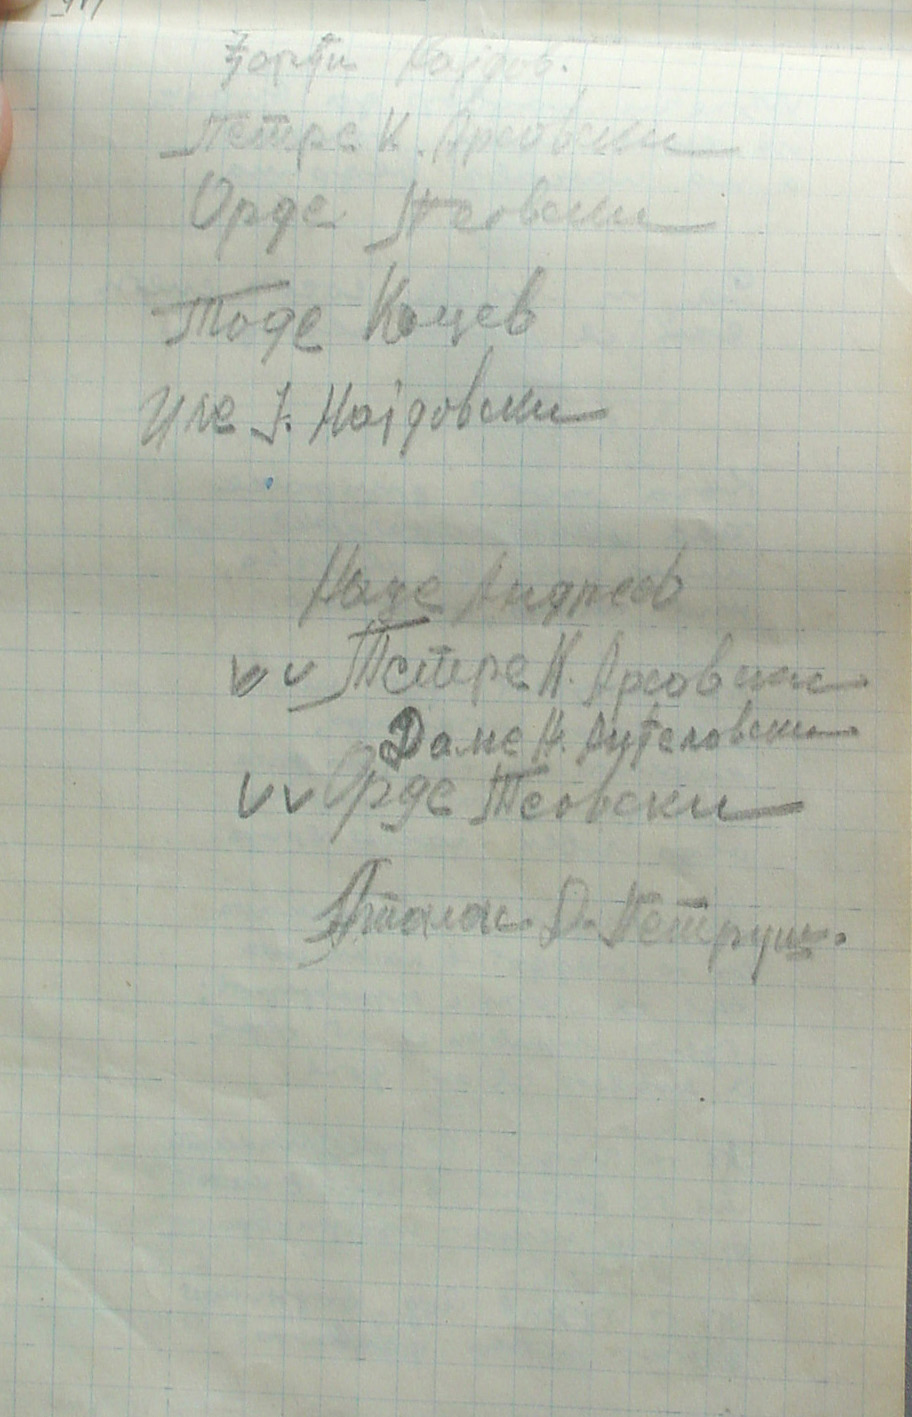 Најдов.
Петре К. Арсовски
Орде Теовски
Тоде Коцев
Иле Ј. Најдовски
Наце Андреев
Петре К. Арсовски
Даме Н. Анѓеловски
Орде Теовски
Атанас. Д. Петруш.